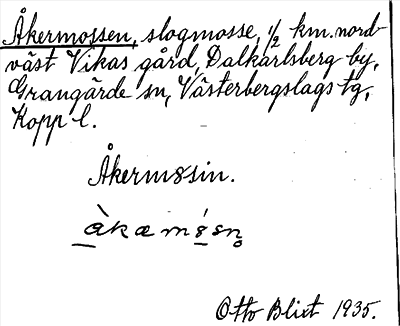 Åkermossen, slogmosse, 1/2 km. nord-
väst Vikas gård, Dalkarlsberg by,
Grangärde sn, Västerbergslags tg,
Kopp l.
Åkerm8sin.
àkæmś8sn̥
Otto Blixt 1935.